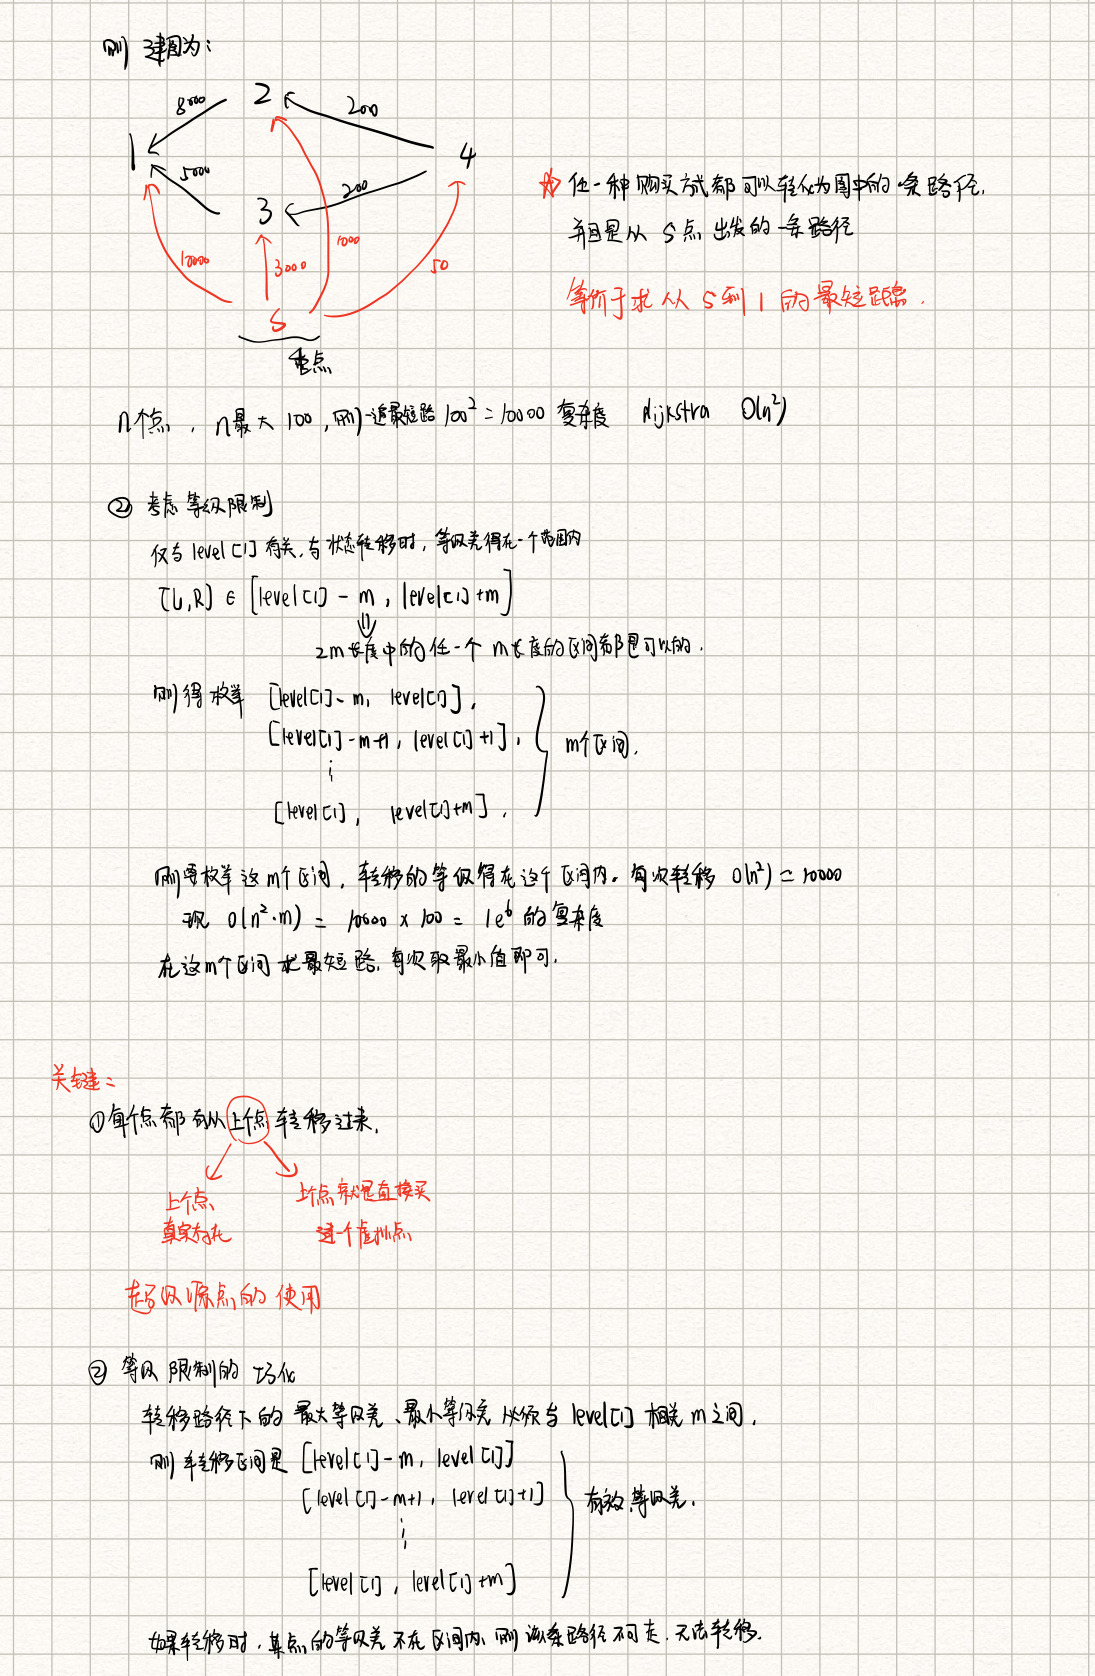 则 建图为:
8000 2 200
1 5000 4
200
3
10000 3000 1000 50
S
虚点
☆ 任一种购买方式都可以转化为图中的一条路径,
并且是从 S点 出发的一条路径
等价于求从 S到 1 的最短距离.
n个点, n最大 100, 则一遍最短路 100²=10000 复杂度 dijkstra O(n²)
② 考虑等级限制
仅与 level[1] 有关, 与状态转移时, 等级差得在一个范围内
[L,R] ∈ [level[1] - m, level[1]+m]
⇓
2m长度中的任一个 m长度的区间都是可以的.
则得枚举 [level[1]-m, level[1]],
[level[1]-m+1, level[1]+1],
⋮
[level[1], level[1]+m].
m个区间.
则要枚举这m个区间, 转移的等级得在这个区间内. 每次转移 O(n²) = 10000
现 O(n²·m) = 10000 × 100 = 1e⁶ 的复杂度
在这m个区间求最短路, 每次取最小值即可.
关键:
①每个点都可从上个点转移过来.
上个点
真实存在
上个点就是直接买
这个虚拟点
超级源点的使用
② 等级限制的巧化
转移路径下的 最大等级差、最小等级差 必须与 level[1] 相差 m之间.
则转移区间是 [level[1]-m, level[1]]
[level[1]-m+1, level[1]+1]
⋮
[level[1], level[1]+m]
有效等级差.
如果转移时, 某点的等级差不在区间内, 则该条路径不可走, 无法转移.